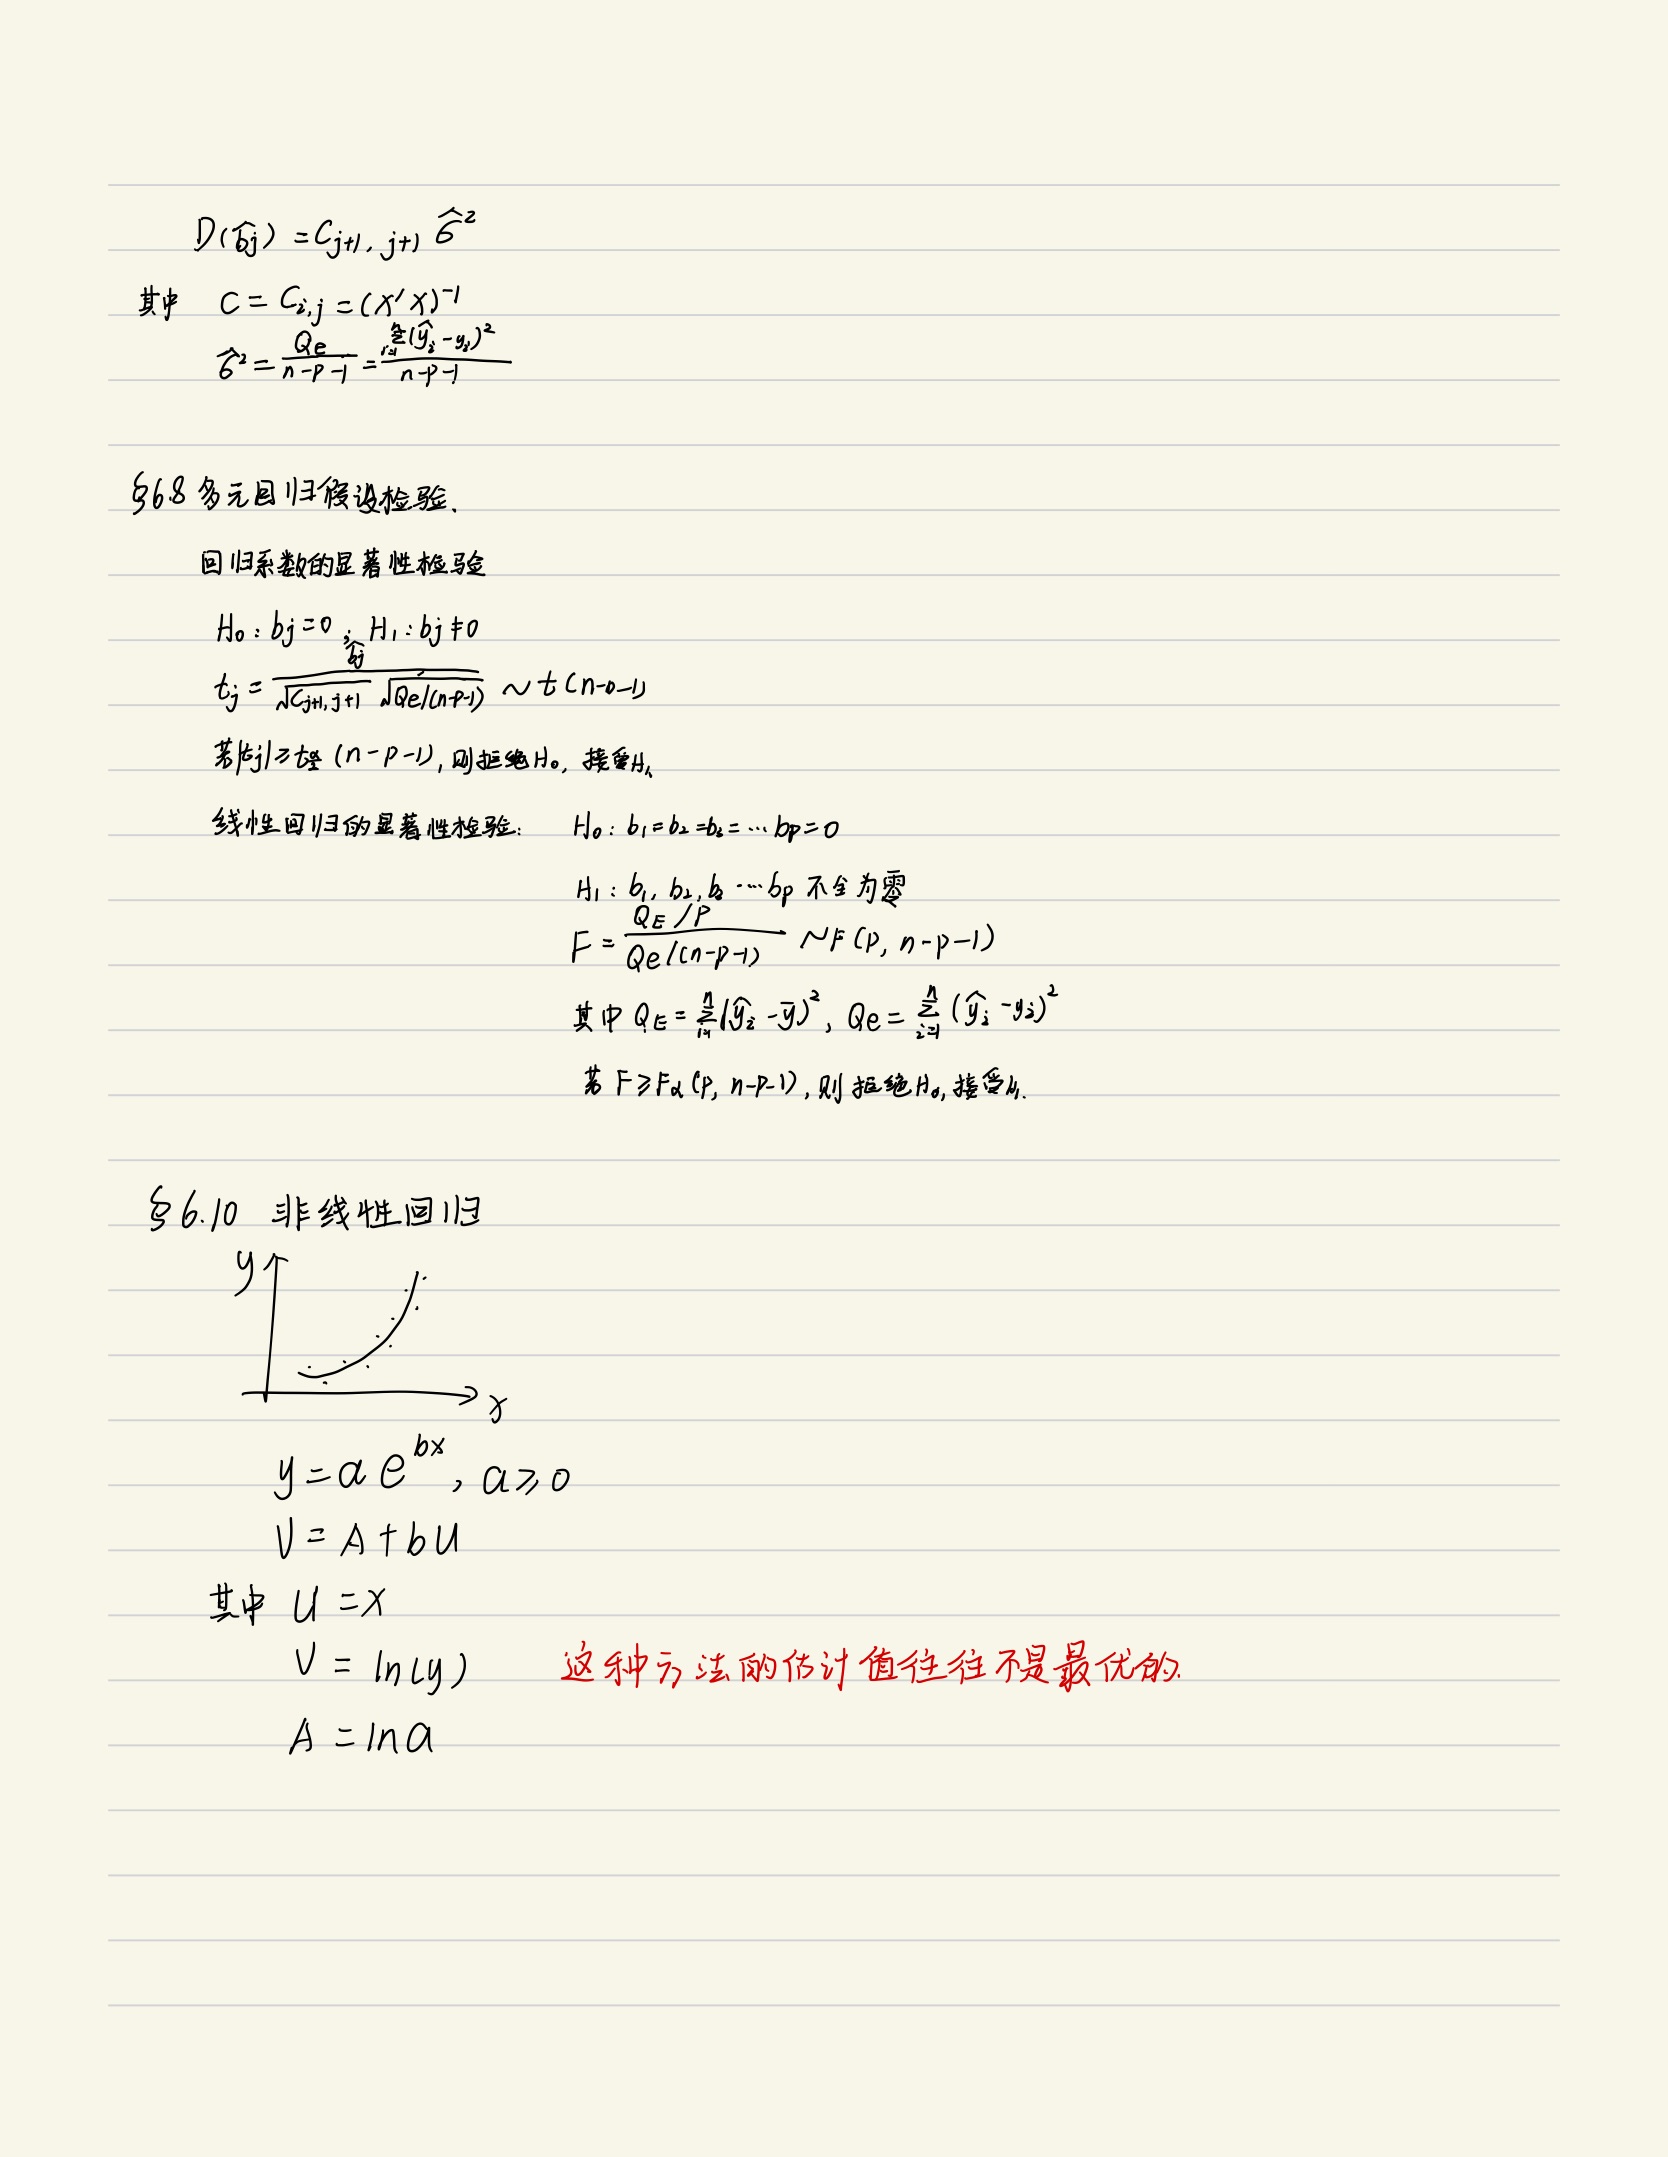 D(b̂j) = Cj+1, j+1 σ̂²
其中 C = Ci,j = (X'X)⁻¹
σ̂² = Qe/(n-p-1) = Σ(i=1..n)(ŷi - yi)²/(n-p-1)
§6.8 多元回归假设检验.
回归系数的显著性检验
H₀: bj=0; H₁: bj≠0
tj = b̂j/(√Cj+1, j+1 √Qe/(n-p-1)) ~ t(n-p-1)
若|tj|≥tα/2 (n-p-1), 则拒绝H₀, 接受H₁
线性回归的显著性检验: H₀: b₁=b₂=b₃=…bp=0
H₁: b₁, b₂, b₃ …bp 不全为零
F = (QE/p)/(Qe/(n-p-1)) ~F(p, n-p-1)
其中 QE = Σ(i=1..n)(ŷi - ȳ)², Qe = Σ(i=1..n)(ŷi - yi)²
若 F≥Fα(p, n-p-1), 则拒绝H₀, 接受H₁.
§6.10 非线性回归
y
x
y = a e^bx, a≥0
V = A+bU
其中 U = x
V = ln(y) 这种方法的估计值往往不是最优的.
A = ln a